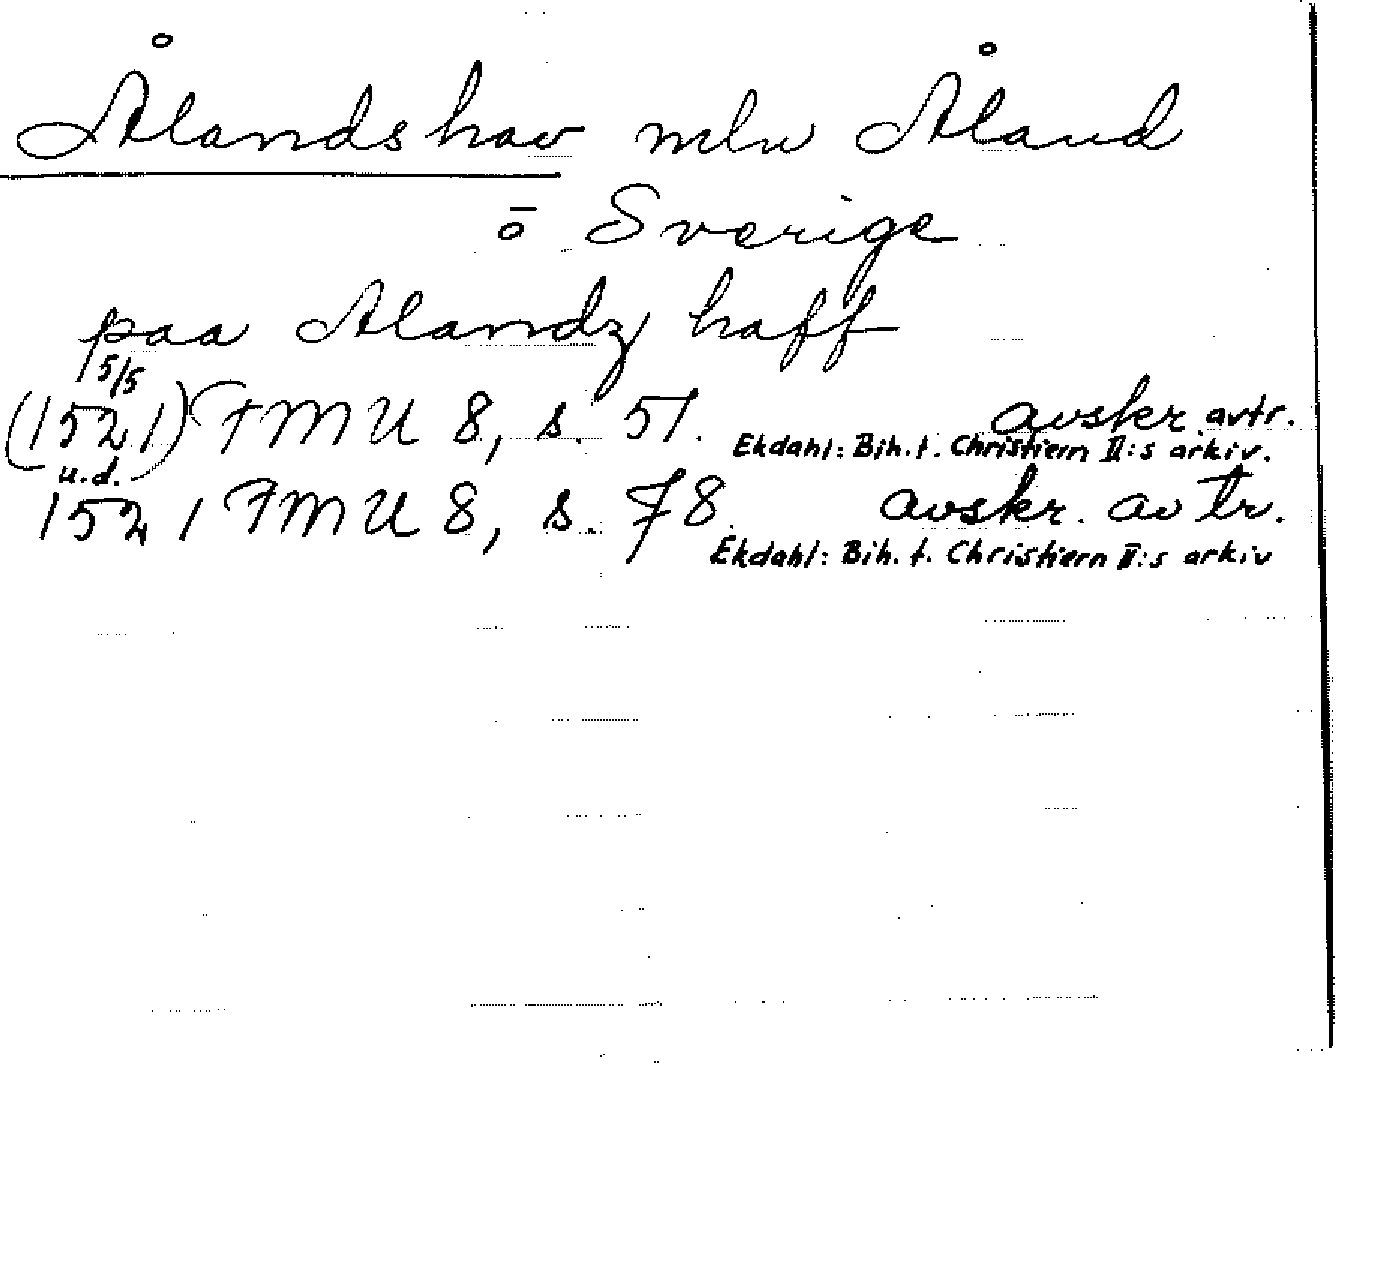 Ålandshav mlw Åland
ō Sverige
paa Alandz haff
5/5
(1521) FMU 8, s. 51. avskr. avtr.
Ekdahl: Bih. t. Christiern II:s arkiv.
u.d.
1521 FMU 8, s. 78. avskr. av tr.
Ekdahl: Bih. t. Christiern II:s arkiv